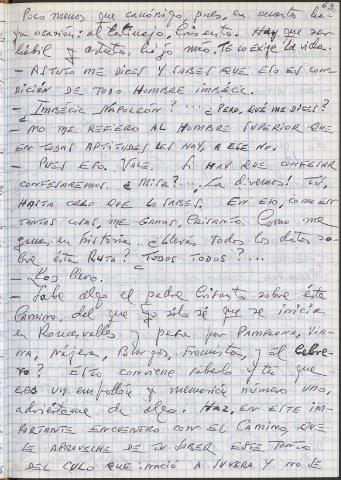 63
Poco menos que canónigo, pues, en cuanto ha-
ya ocasión: al tatuejo, Crisanto. Hay que ser
hábil y astuto, hijo mío. Te lo exige la vida.
- ASTUTO ME DICES Y SABES QUE ESO ES CON
DICIÓN DE TODO HOMBRE IMBÉCIL.
- ¿IMBÉCIL NAPOLEÓN?... ¿PERO, QUÉ ME DICES?
- NO ME REFIERO AL HOMBRE SUPERIOR QUE
EN TODAS APTITUDES LES HAY, A ESE NO.
- PUES ESO. VALE. SI HAY QUE CONFESAR
CONFESAREMOS. ¿MISA?... ¡La diremos! TÚ,
HASTA CREO QUE LO SABES. EN ESO, COMO EN
TANTAS COSAS, ME GANAS, CRISANTO. Como me
ganas en historia. ¿Llevas todos los datos so-
bre esta RUTA? ¿TODOS TODOS?...
- Los llevo.
- ¿Sabe algo el padre Crisanto sobre este
Camino, del que yo sólo sé que se inicia
en Roncesvalles y pasa por PAMPLONA, VIA-
NA, Nájera, Burgos, Frómista, y El Cebre-
ro? ESTO conviene saberlo y tú que
eres un empollón y memorión número uno,
adviérteme de algo. HAZ, EN ESTE IM-
PORTANTE ENCUENTRO CON EL CAMINO, QUE
SE APROVECHE DE TU SABER ESTE TONTO
DEL CULO QUE NACIÓ A SU VERA Y NO SE